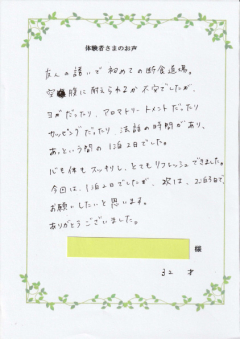 体験者さまのお声
友人の誘いで初めての断食道場。
空腹に耐えられるか不安でしたが、
ヨガだったり、アロマトリートメントだったり
カッピングだったり、法話の時間があり、
あっという間の1泊2日でした。
心も体もスッキリし、とてもリフレッシュできました。
今回は、1泊2日でしたが、次は、2泊3日で
お願いしたいと思います。
ありがとうございました。
様
32 才